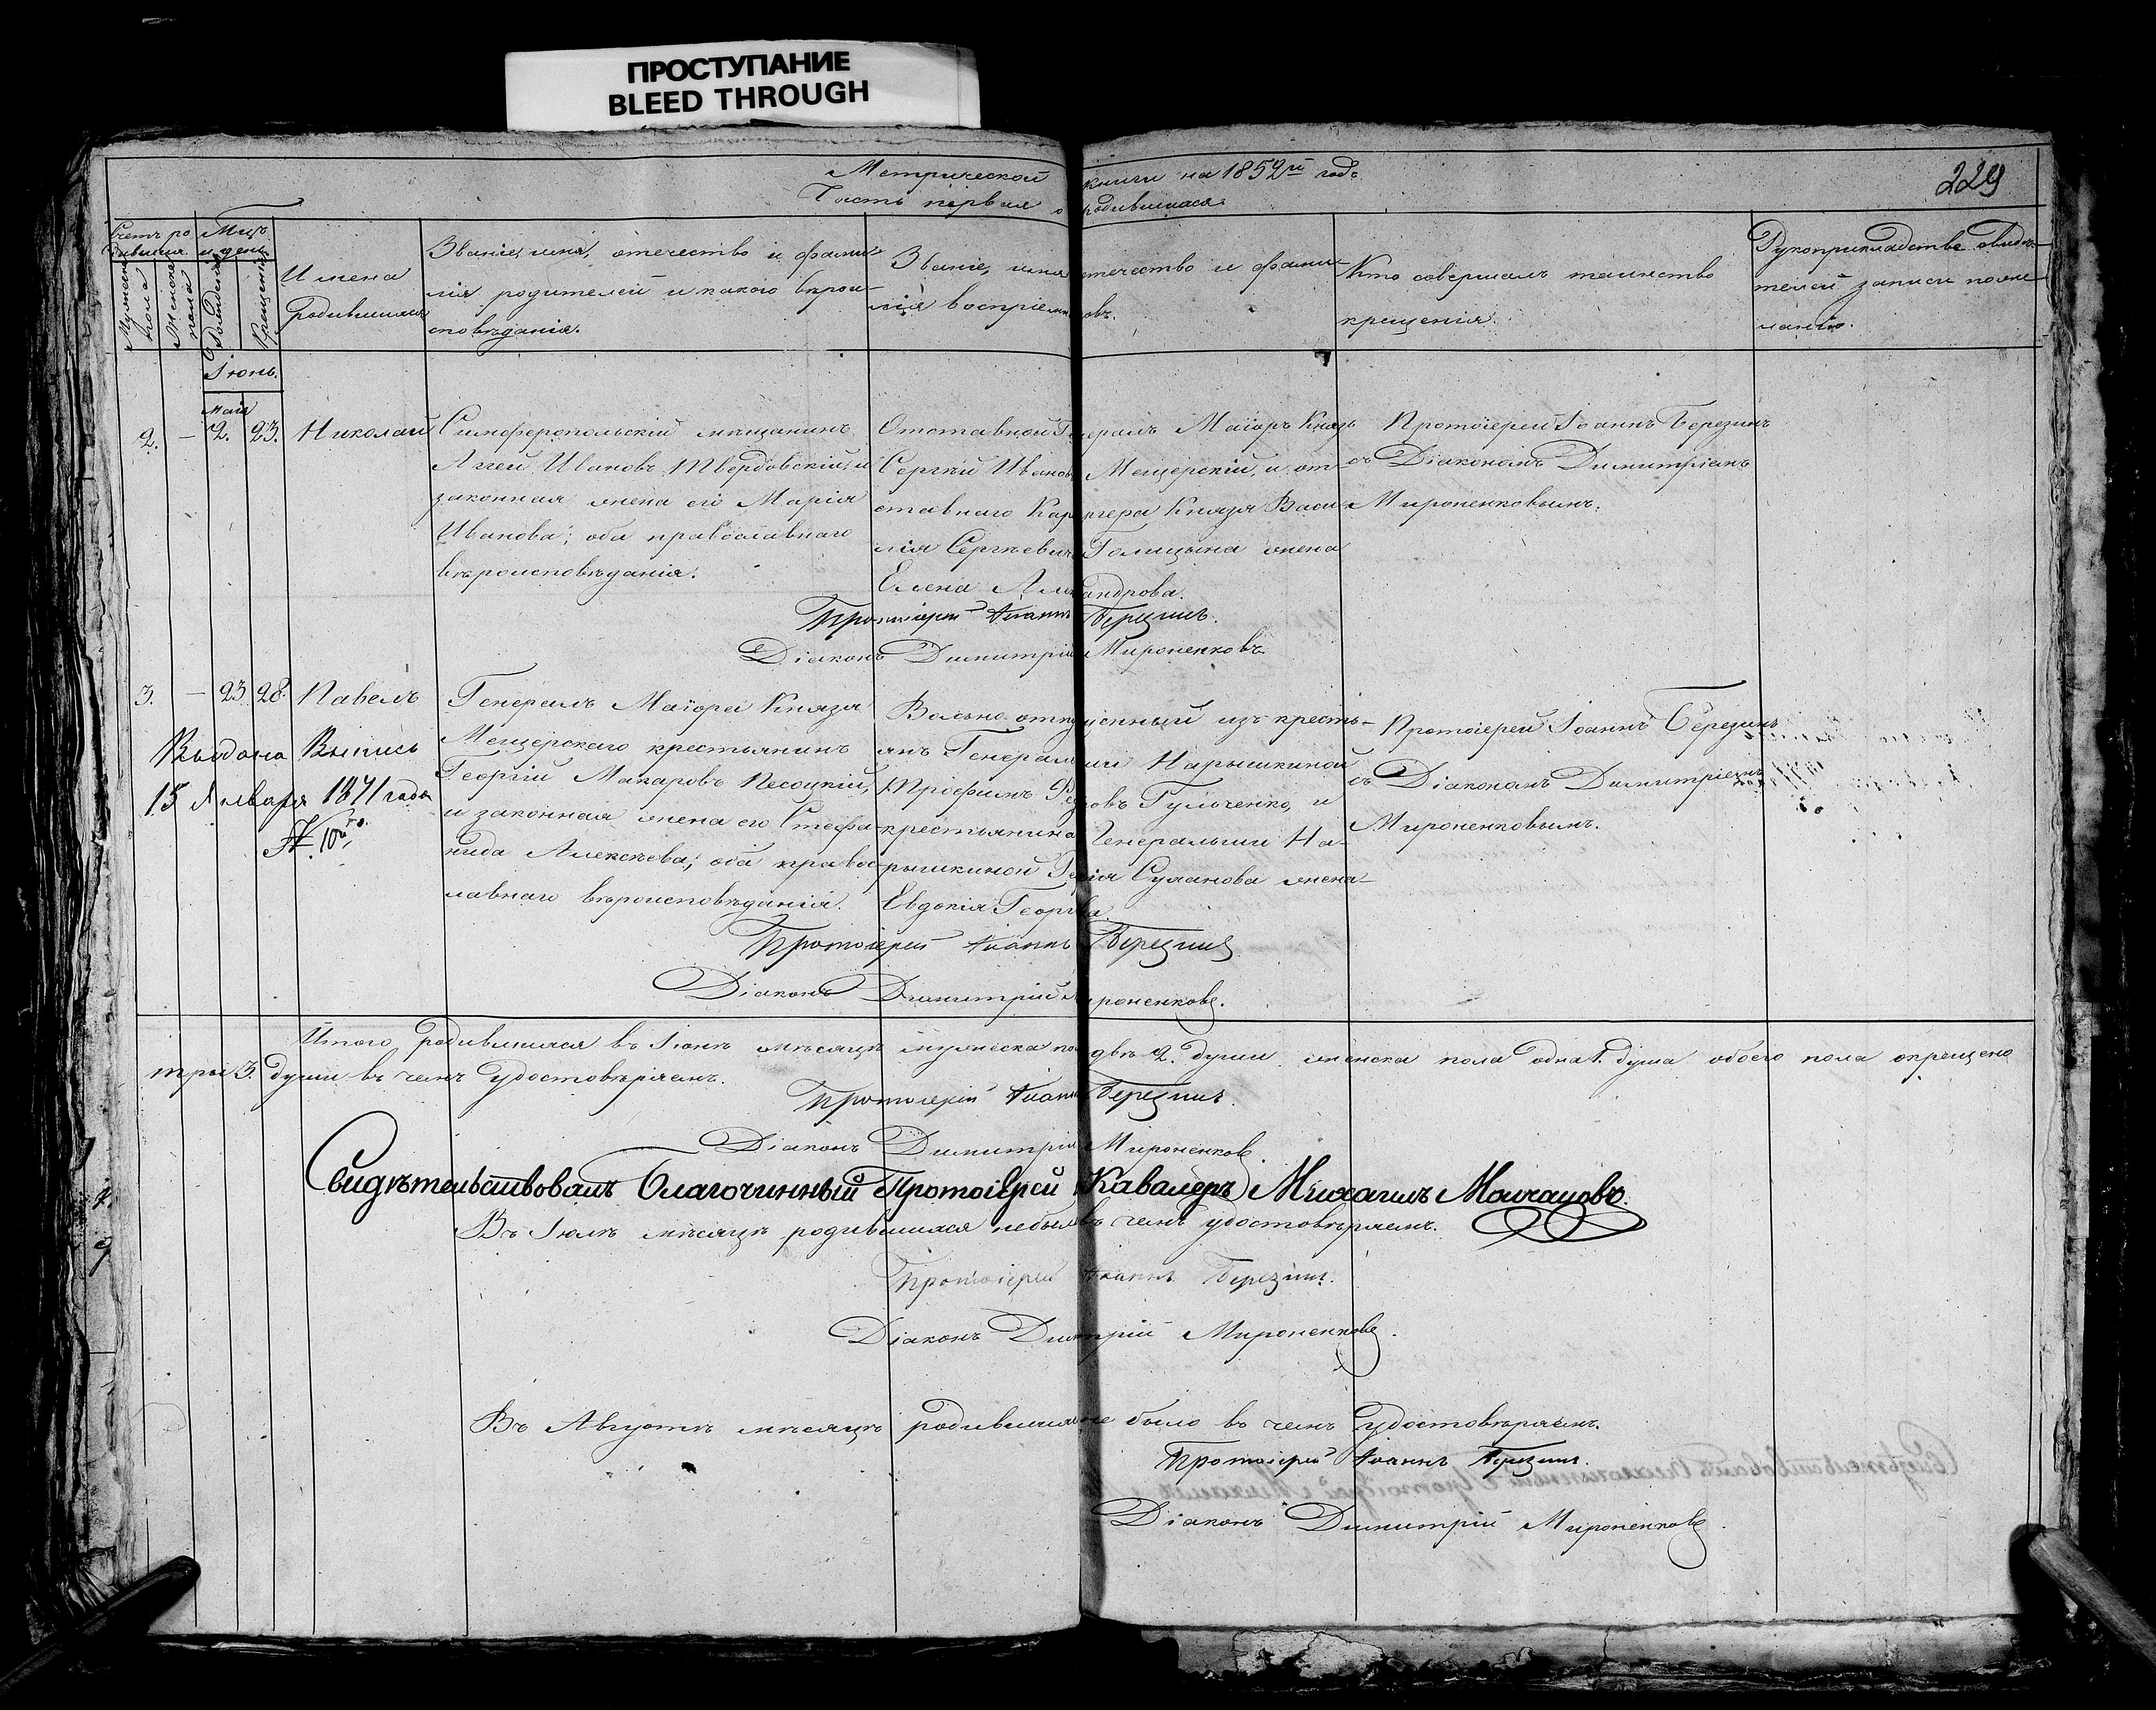 ПРОСТУПАНИЕ
BLEED THROUGH
Метрической книги на 1852й годъ
Часть первая о родившихся.
229
Счетъ родившихся
Мужеска пола
Женска пола
Мцъ и день
Рожденія
Крещенія
Имена
Родившихся
Званіе, имя, отечество и фами-
лія родителей и какого вѣрои-
сповѣданія.
Званіе, имя отечество и фами-
лія воспріемниковъ.
Кто совершалъ таинство
крещенія.
Рукоприкладство свидѣ-
телей записи по же-
ланію.
Іюнь.
Маія
2. — 2. 23. Николай
Симферопольскій мѣщанинъ
Аггей Ивановъ Твердовскій, и
законная жена его Марія
Иванова; оба православнаго
вѣроисповѣданія.
Отставной Генералъ Маіоръ Князь
Сергѣй Ивановъ Мещерскій, и от-
ставнаго Князя Васи-
лія Сергѣевича Голицына жена
Елена Александрова.
Протоіерей Іоаннъ Березинъ
съ Діакономъ Димитріемъ
Мироненковымъ.
Протоіерей Іоаннъ Березинъ.
Діаконъ Димитрій Мироненковъ.
3. — 23. 28. Павелъ
Выдана Выпись
15 Января 1871 года
№ 10й
Генералъ Маіора Князя
Мещерскаго крестьянинъ
Георгій Макаровъ Песоцкій,
и законная жена его Стефа-
нида Алексѣева; оба правос-
лавнаго вѣроисповѣданія.
Вольно отпущенный изъ кресть-
янъ Генеральши Нарышкиной
Гульченко, и
крестьянина Генеральши На-
рышкиной жена
Евдокія
Протоіерей Іоаннъ Березинъ
съ Діакономъ Димитріемъ
Мироненковымъ.
Протоіерей Іоаннъ Березинъ
Діаконъ Димитрій Мироненковъ.
Итого родившихся въ Іюнѣ мѣсяцѣ мужеска пола двѣ 2. души женска пола одна 1. душа обоего пола окрещено
три 3. души въ чемъ удостовѣряемъ.
Протоіерей Іоаннъ Березинъ.
Діаконъ Димитрій Мироненковъ.
Свидѣтельствовалъ Благочинный Протоіерей Кавалеръ Михаилъ
Въ Іюлѣ мѣсяцѣ родившихся небыло въ чемъ удостовѣряемъ.
Протоіерей Іоаннъ Березинъ.
Діаконъ Димитрій Мироненковъ.
Въ Августѣ мѣсяцѣ родившихся не было въ чемъ удостовѣряемъ.
Протоіерей Іоаннъ Березинъ.
Діаконъ Димитрій Мироненковъ.